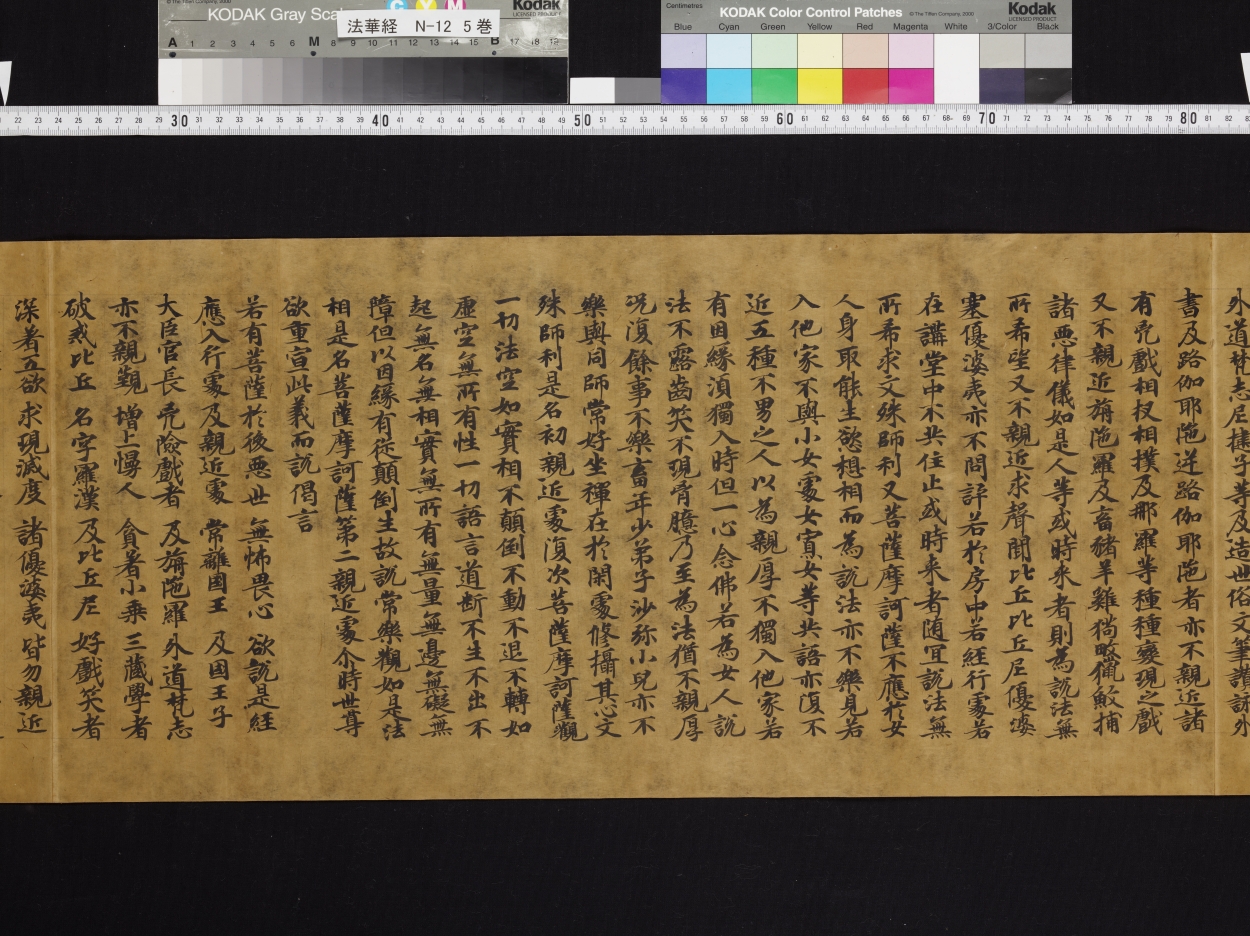 © The Tiffen Company, 2000
KODAK Gray Scale
C Y M
Kodak
LICENSED PRODUCT
法華経 N-12 5巻
A 1 2 3 4 5 6 M 8 9 10 11 12 13 14 15 B 17 18 19
Centimetres
KODAK Color Control Patches
© The Tiffen Company, 2000
Kodak
LICENSED PRODUCT
Blue Cyan Green Yellow Red Magenta White 3/Color Black
22 23 24 25 26 27 28 29 30 31 32 33 34 35 36 37 38 39 40 41 42 43 44 45 46 47 48 49 50 51 52 53 54 55 56 57 58 59 60 61 62 63 64 65 66 67 68 69 70 71 72 73 74 75 76 77 78 79 80 81 82
外道梵志尼揵子等及造世俗文筆讃詠外
書及路伽耶陁逆路伽耶陁者亦不親近諸
有兇戲相扠相撲及那羅等種種變現之戲
又不親近旃陁羅及畜猪羊雞狗畋獵漁捕
諸悪律儀如是人等或時来者則為說法無
所希望又不親近求聲聞比丘比丘尼優婆
塞優婆夷亦不問訊若於房中若経行處若
在講堂中不共住止或時来者随宜說法無
所希求文殊師利又菩薩摩訶薩不應於女
人身取能生慾想相而為說法亦不樂見若
入他家不與小女處女寡女等共語亦復不
近五種不男之人以為親厚不獨入他家若
有因縁湏獨入時但一心念佛若為女人說
法不露齒笑不現胷臆乃至為法猶不親厚
况復餘事不樂畜年少弟子沙弥小兒亦不
樂與同師常好坐禪在於閑處修攝其心文
殊師利是名初親近處復次菩薩摩訶薩觀
一切法空如實相不顛倒不動不退不轉如
虚空無所有性一切語言道断不生不出不
起無名無相實無所有無量無邊無礙無
障但以因縁有從顛倒生故說常樂觀如是法
相是名菩薩摩訶薩第二親近處尒時世尊
欲重宣此義而說偈言
若有菩薩 於後悪世 無怖畏心 欲說是経
應入行處 及親近處 常離國王 及國王子
大臣官長 兇險戲者 及旃陁羅 外道梵志
亦不親覲 增上慢人 貪著小乗 三藏學者
破戒比丘 名字羅漢 及比丘尼 好戲笑者
深著五欲 求現滅度 諸優婆夷 皆勿親近